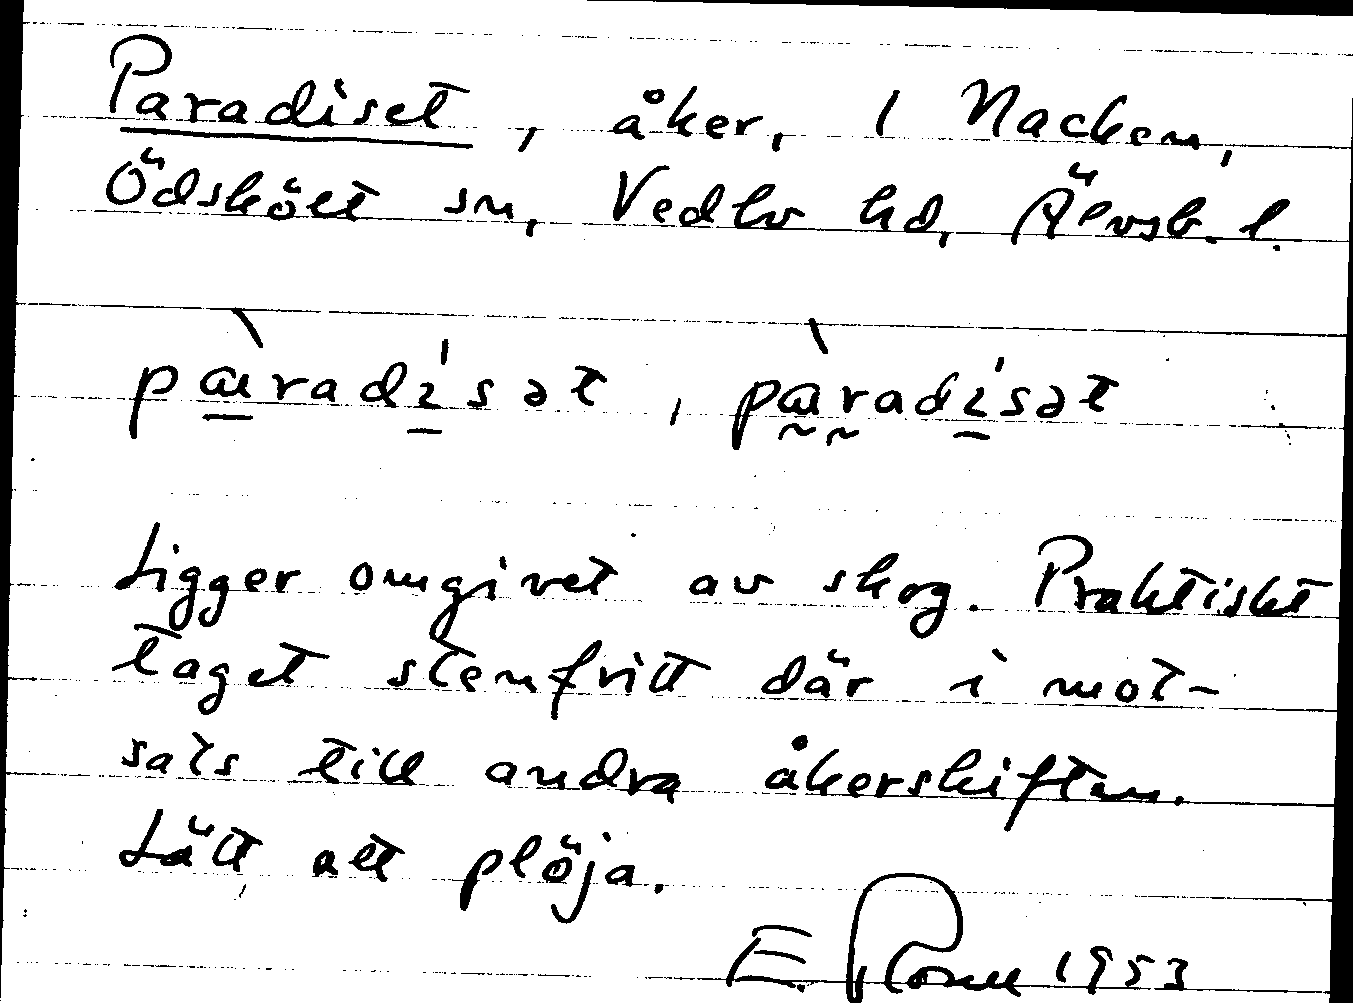 Paradiset, åker, 1 Nacken,
Ödskölt sn, Vedbo hd, Älvsb. l.
pàradí̱sət, pàradí̱sət
Ligger omgivet av skog. Praktiskt
taget stenfritt där i mot-
sats till andra åkerskiften.
Lätt att plöja.
E. 1953